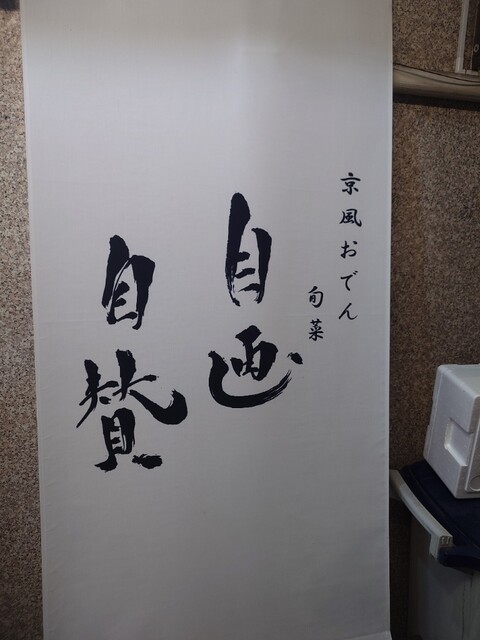 京風おでん
旬菜
自画
自賛